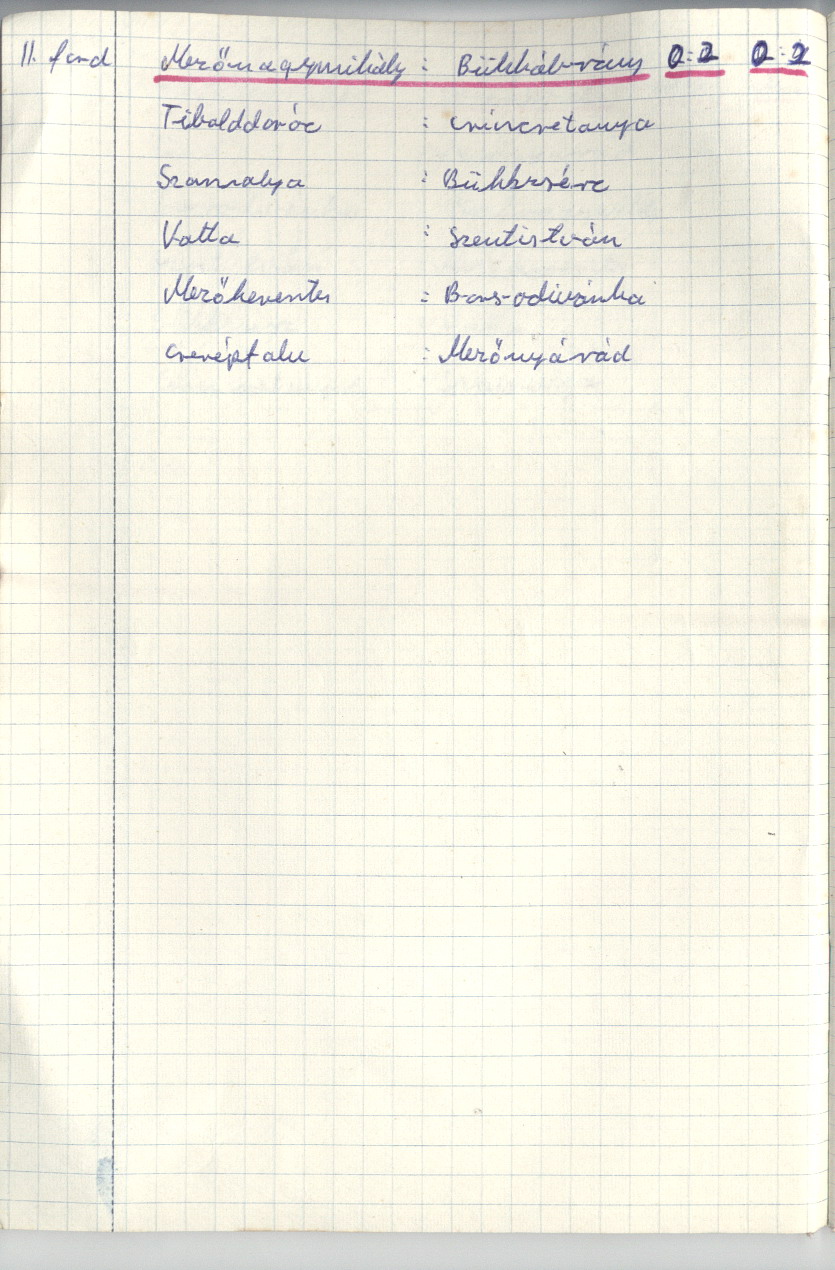 11. ford Mezőnagymihály : Bükkábrány 0:2 0:2
Tibolddaróc : Csincsetanya
Szomolya : Bükkzsérc
Vatta : Szentistván
Mezőkeresztes : Borsodivánka
Cserépfalu : Mezőnyárád